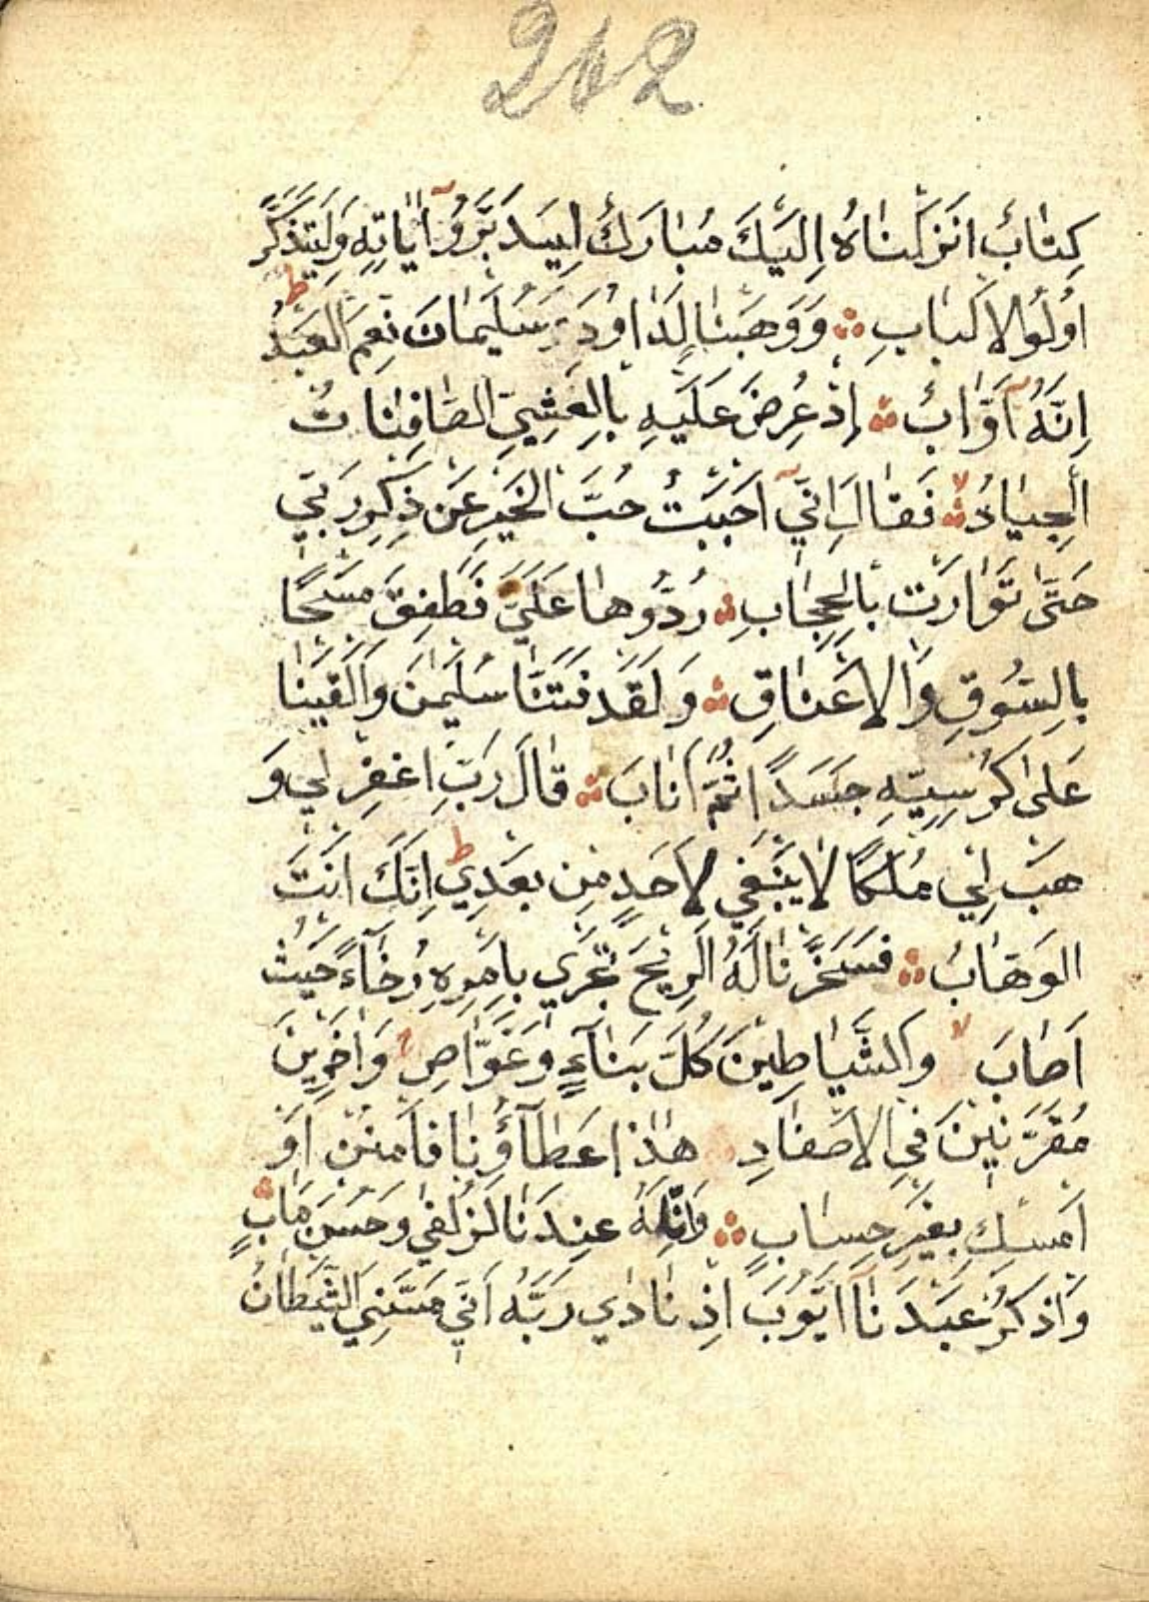 212
كِتَابٌ اَنْزَلْنَاهُ اِلَيْكَ مُبَارَكٌ لِيَدَّبَّرُوٓا اٰيَاتِهٖ وَلِيَتَذَكَّرَ
اُولُوا الْاَلْبَابِ وَوَهَبْنَا لِدَاوُدَ سُلَيْمَانَ نِعْمَ الْعَبْدُ ط
اِنَّهُٓ اَوَّابٌ اِذْ عُرِضَ عَلَيْهِ بِالْعَشِيِّ الصَّافِنَاتُ
الْجِيَادُ لا فَقَالَ اِنِّيٓ اَحْبَبْتُ حُبَّ الْخَيْرِ عَنْ ذِكْرِ رَبِّي
حَتّٰى تَوَارَتْ بِالْحِجَابِ رُدُّوهَا عَلَيَّ فَطَفِقَ مَسْحًا
بِالسُّوقِ وَالْاَعْنَاقِ وَلَقَدْ فَتَنَّا سُلَيْمٰنَ وَاَلْقَيْنَا
عَلٰى كُرْسِيِّهٖ جَسَدًا ثُمَّ اَنَابَ قَالَ رَبِّ اغْفِرْ لِي وَ
هَبْ لِي مُلْكًا لَا يَنْبَغِي لِاَحَدٍ مِنْ بَعْدِي ط اِنَّكَ اَنْتَ
الْوَهَّابُ فَسَخَّرْنَا لَهُ الرِّيحَ تَجْرِي بِاَمْرِهٖ رُخَآءً حَيْثُ
اَصَابَ لا وَالشَّيَاطِينَ كُلَّ بَنَّآءٍ وَغَوَّاصٍ وَاٰخَرِينَ
مُقَرَّنِينَ فِي الْاَصْفَادِ هٰذَا عَطَآؤُنَا فَامْنُنْ اَوْ
اَمْسِكْ بِغَيْرِ حِسَابٍ وَاِنَّ لَهُ عِنْدَنَا لَزُلْفٰى وَحُسْنَ مَاٰبٍ
وَاذْكُرْ عَبْدَنَآ اَيُّوبَ اِذْ نَادٰى رَبَّهُ اَنِّي مَسَّنِيَ الشَّيْطَانُ